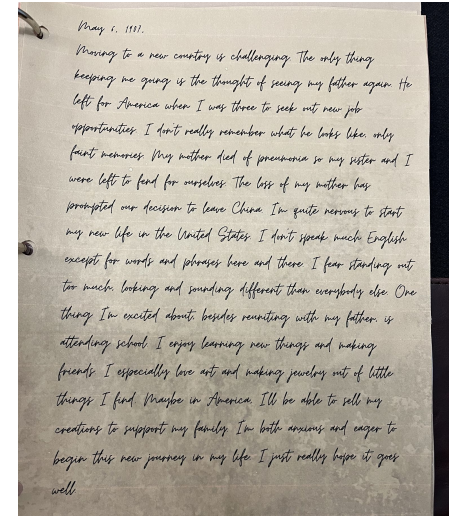 May 6, 1937.
Moving to a new country is challenging. The only thing
keeping me going is the thought of seeing my father again. He
left for America when I was three to seek out new job
opportunities. I don't really remember what he looks like, only
faint memories. My mother died of pneumonia so my sister and I
were left to fend for ourselves. The loss of my mother has
prompted our decision to leave China. I'm quite nervous to start
my new life in the United States. I don't speak much English
except for words and phrases here and there. I fear standing out
too much, looking and sounding different than everybody else. One
thing I'm excited about, besides reuniting with my father, is
attending school. I enjoy learning new things and making
friends. I especially love art and making jewelry out of little
things I find. Maybe in America, I'll be able to sell my
creations to support my family. I'm both anxious and eager to
begin this new journey in my life. I just really hope it goes
well.